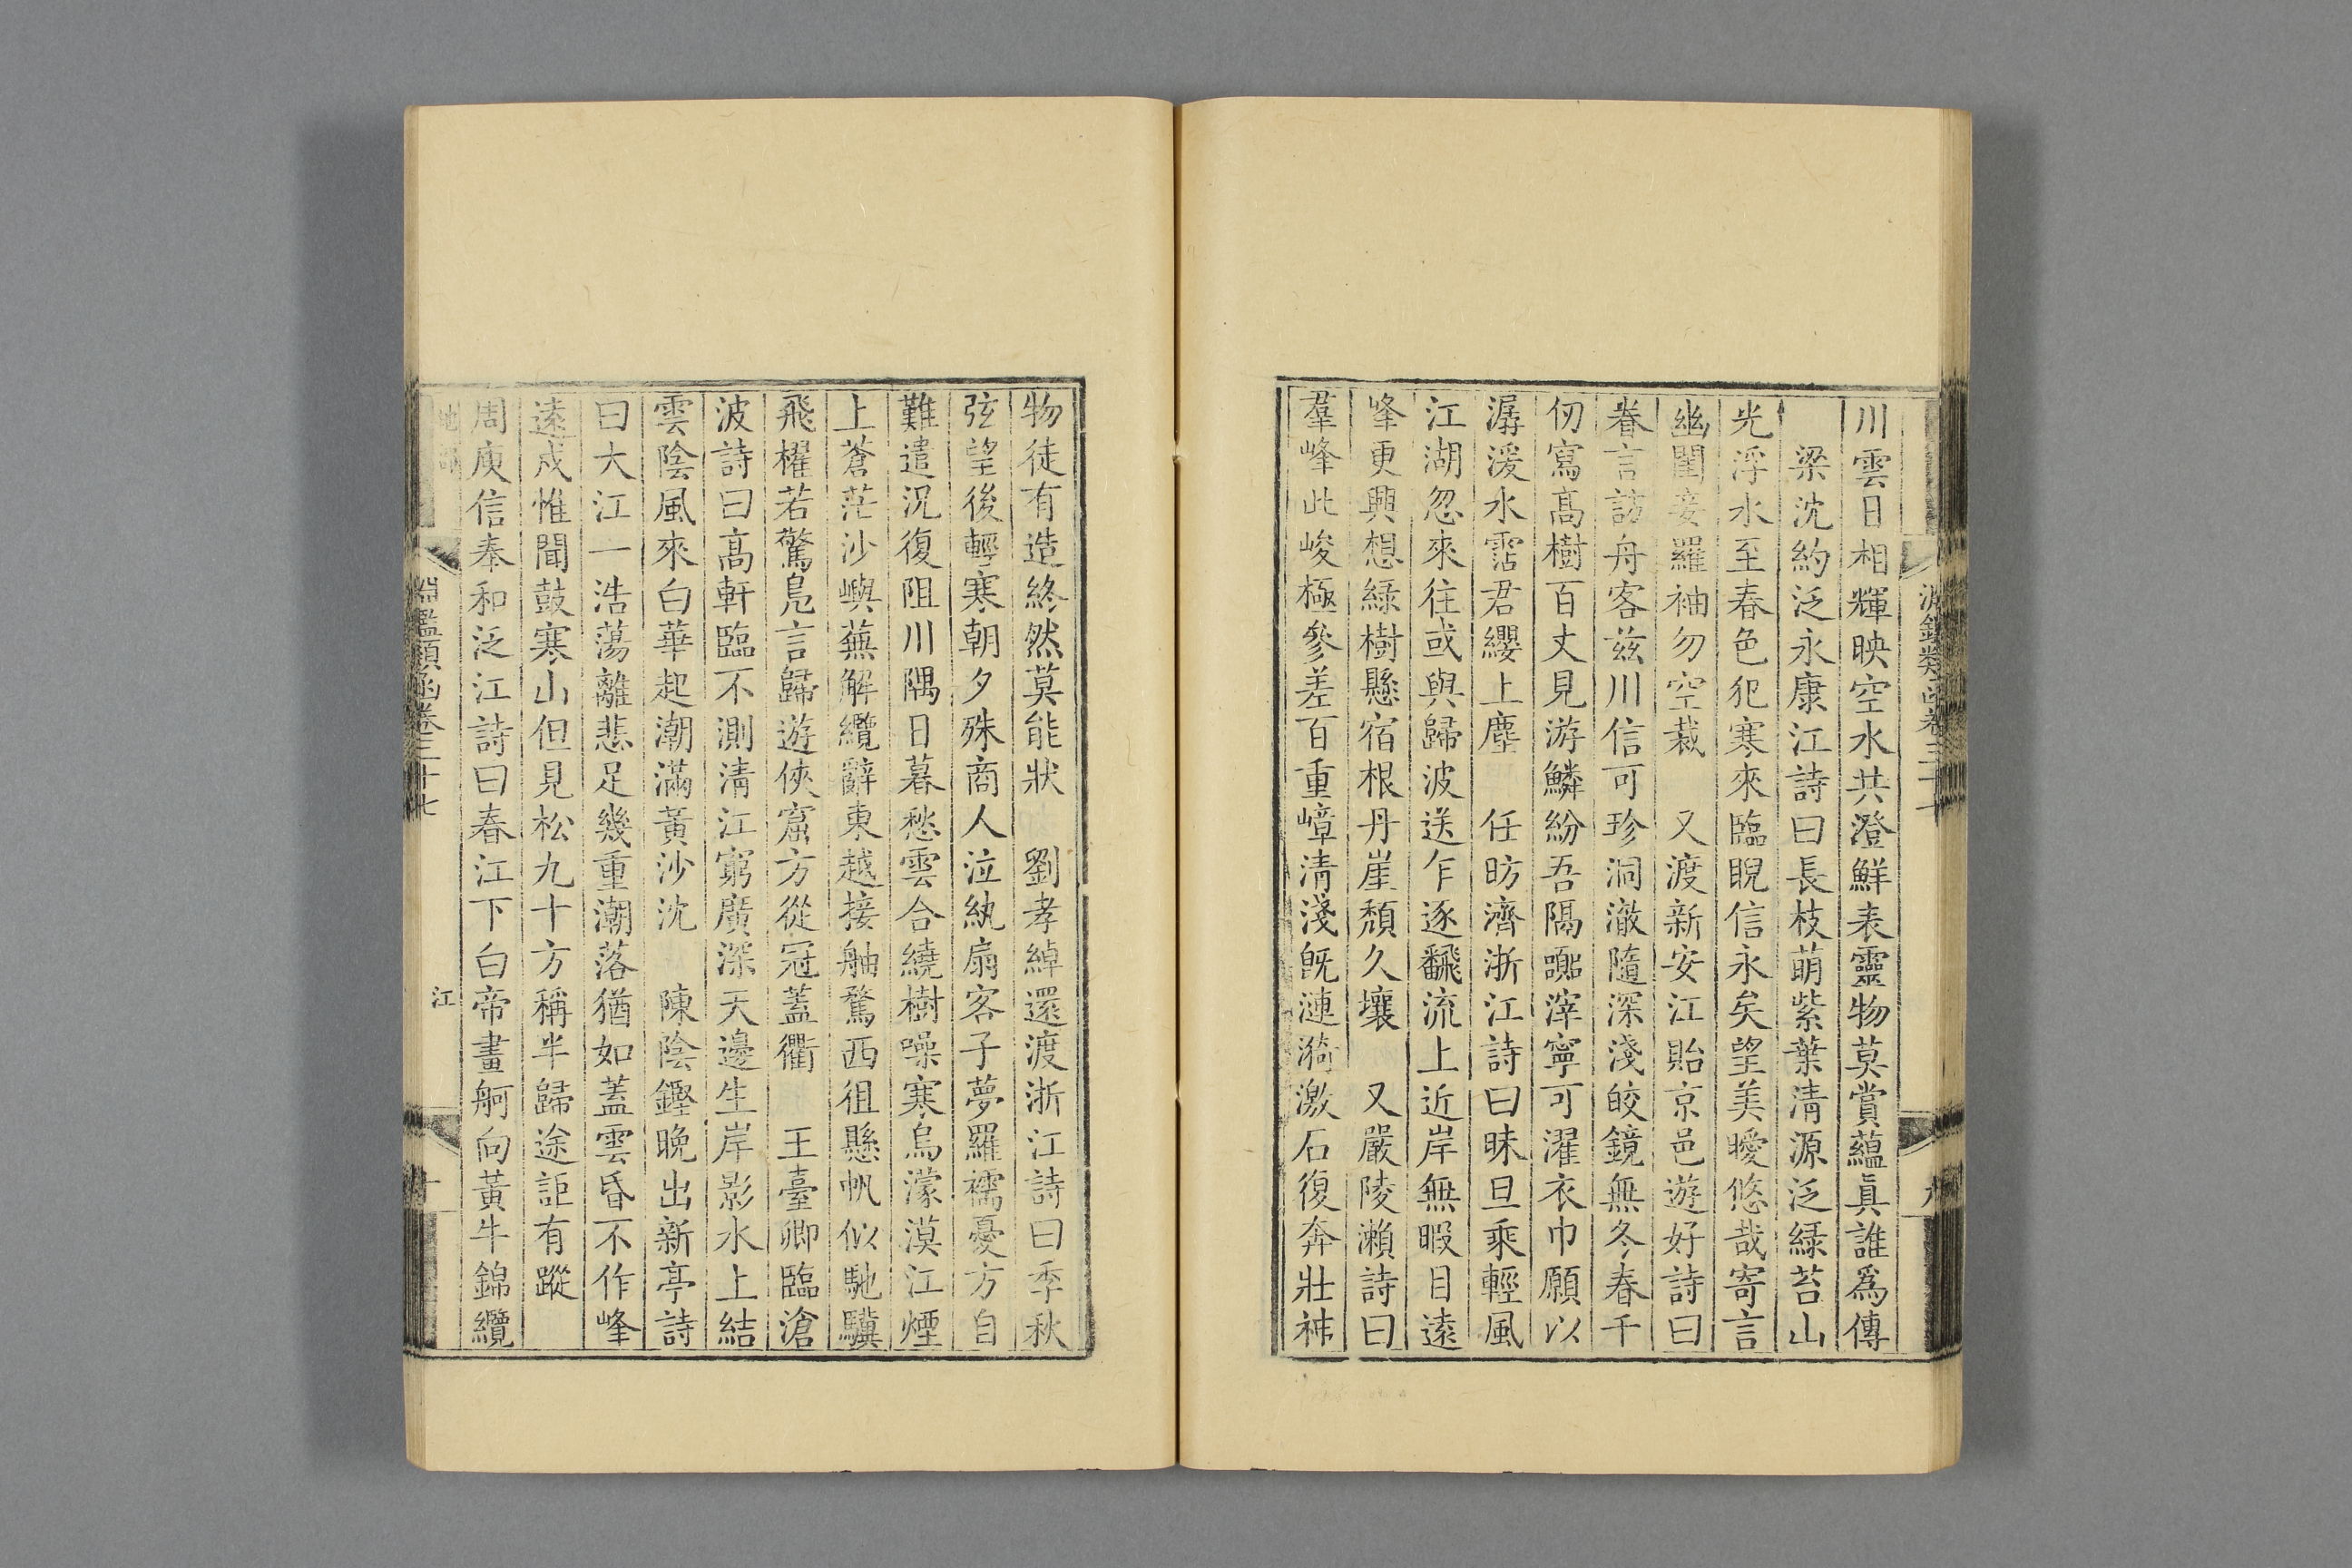 川雲日相輝映空水共澄鮮表靈物莫賞蘊眞誰爲傳
梁沈約泛永康江詩曰長枝萌紫葉清源泛緑苔山
光浮水至春色犯寒來臨睨信永矣望美曖悠哉寄言
幽閨妾羅袖勿空裁 又渡新安江貽京邑遊好詩曰
眷言訪舟客兹川信可珍洞澈隨深淺皎鏡無冬春千
仞寫髙樹百丈見游鱗紛吾隔囂滓寧可濯衣巾願以
潺湲水霑君纓上塵 任昉濟浙江詩曰昧旦乘輕風
江湖忽來往或與歸波送乍逐飜流上近岸無暇目遠
峰更興想緑樹懸宿根丹崖頽久壤 又嚴陵瀨詩曰
羣峰此峻極參差百重嶂清淺旣漣漪激石復奔壯神
物徒有造終然莫能狀 劉孝綽還渡浙江詩曰季秋
弦望後輕寒朝夕殊商人泣紈扇客子夢羅襦憂方自
難遣況復阻川隅日暮愁雲合繞樹噪寒烏濛漠江煙
上蒼茫沙嶼蕪解纜辭東越接舳騖西徂懸帆似馳驥
飛櫂若驚鳧言歸遊俠窟方從冠蓋衢 王臺卿臨滄
波詩曰髙軒臨不測清江窮廣深天邊生岸影水上結
雲陰風來白華起潮滿黃沙沈 陳陰鏗晚出新亭詩
曰大江一浩蕩離悲足幾重潮落猶如蓋雲昏不作峰
遠戍惟聞鼓寒山但見松九十方稱半歸途詎有蹤
周庾信奉和泛江詩曰春江下白帝畫舸向黃牛錦纜
淵鑑類函卷三十七
江